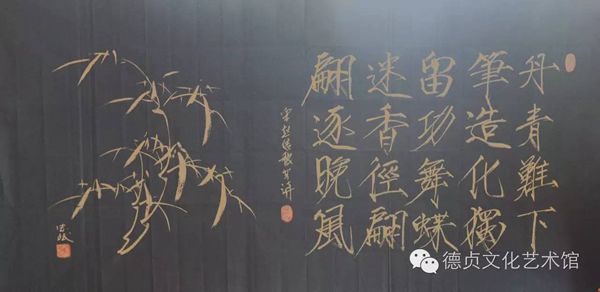 丹青難下
筆造化獨
留功舞蝶
迷香徑翩
翩逐晚風
宋趙佶穠芳詩
德贞文化艺术馆